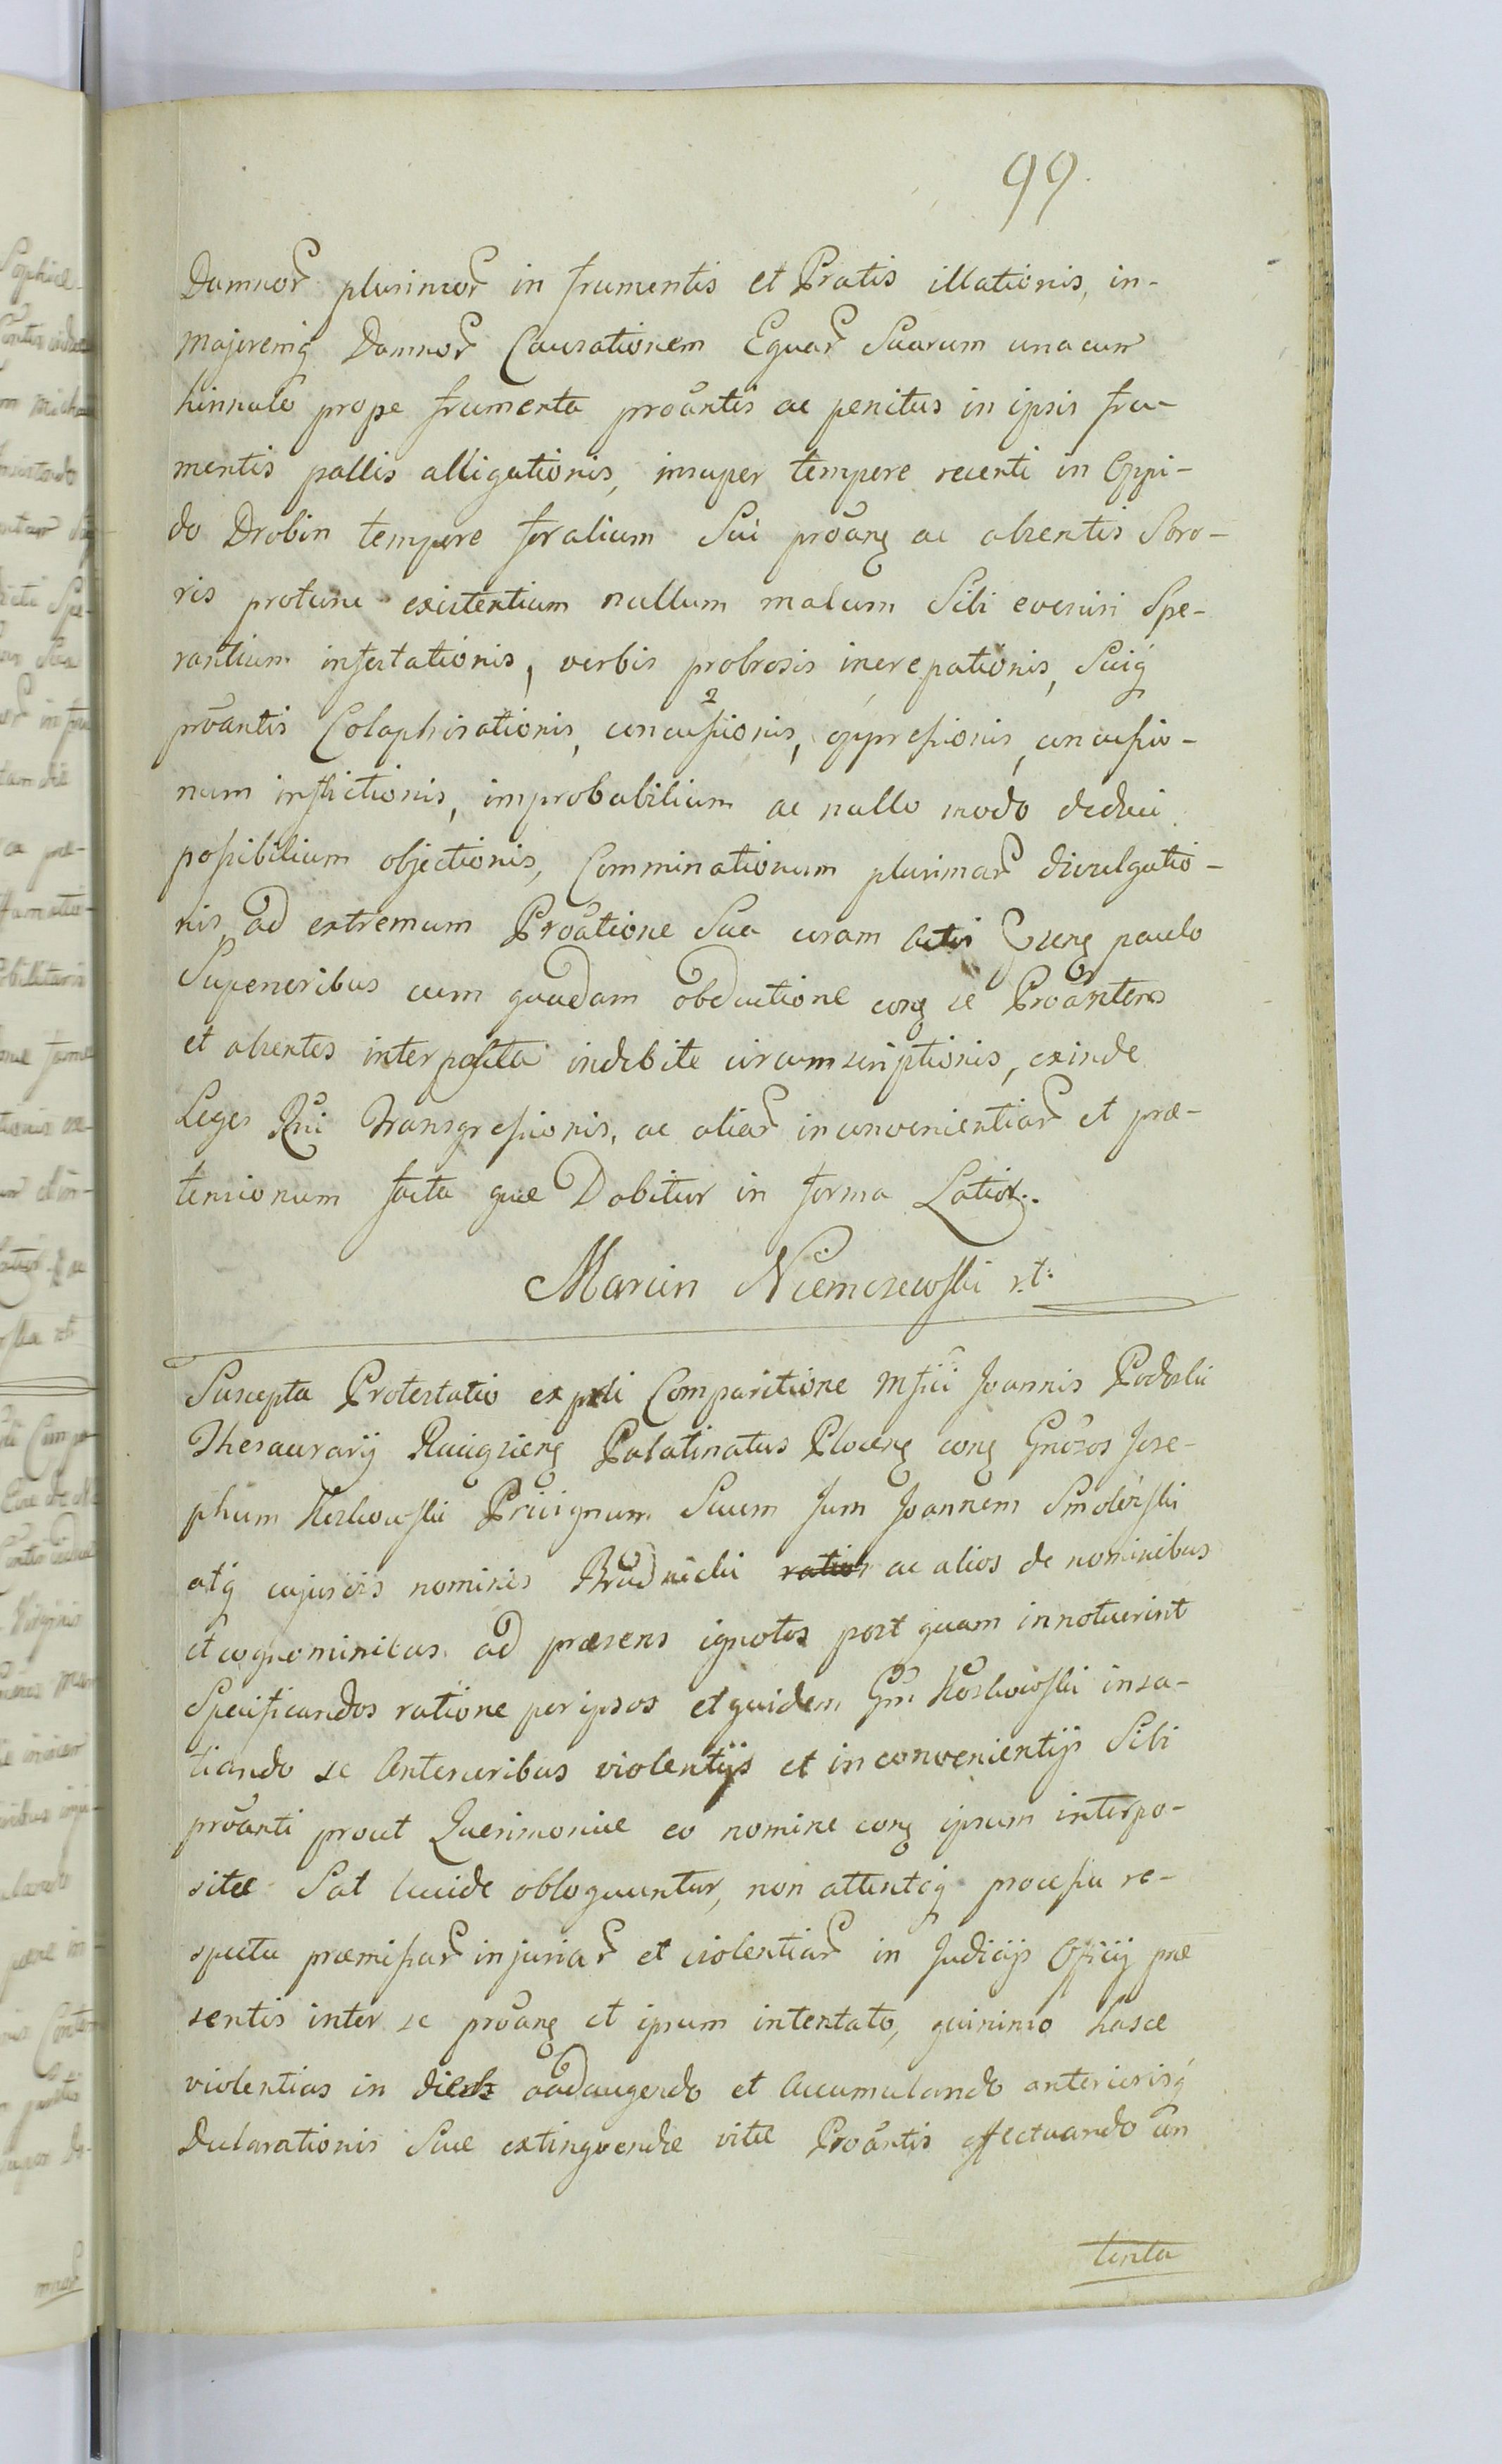 99.
Damnor plurimor in frumentis et Pratis illationis, in-
majoremq Damnor Causationem Equar Suarum una cum
hinnulo prope frumenta proantis ac penitus in ipsis fru-
mentis pallis alligationis, insuper tempore recenti in Oppi-
do Drobin tempore foralium Sui proang ac absentis Soro-
ris protunc existentium nullum malum Sibi eveniri Spe-
rantium infestationis, verbis probrosis increpationis, Suiq
proantis Colaphisationis, concussionis, oppressionis, concussio-
num inflictionis, improbabilium ac nullo modo deduci
possibilium objectionis, Comminationum plurimar divulgatio-
nis ad extremum Proatione Sua coram Actis paulo
Superioribus cum quadam obductione cong se Proantem
et absentes interposita indebite circumscriptionis, exinde
Leges Rni Transgressionis, ac aliar inconvenientiar et præ-
tensionum facta quæ Dabitur in forma Latior.
Marcin Niemczewski rt:
Suscepta Protestatio ex psli Comparitione Mfici Joannis Podoski
Thesaurarij Raciąziens Palatinatus Plocens cong Gnosos Jose-
phum Kozłowski Privignum Suum Jum Joannem Smoleński
atq cujusvis nominis Brudnicki ac alios de nominibus
et cognominibus ad præsens ignotos post quam innotuerint
Specificandos ratione per ipsos et quidem Gm Kozłowski insa-
tiando se Anterioribus violentijs et inconvenientijs Sibi
proanti prout Querimoniæ eo nomine cong ipsum interpo-
sitæ Sat lucide obloquuntur, non attentoq processu re-
spectu præmissar injuriar et violentiar in Judicijs Officij præ
sentis inter se proang et ipsum intentato, quinimo hasce
violentias in dies adaugendo et Accumulando anteriorisq
Declarationis Suæ extinguendæ vitæ Proantis effectuando an
tenta